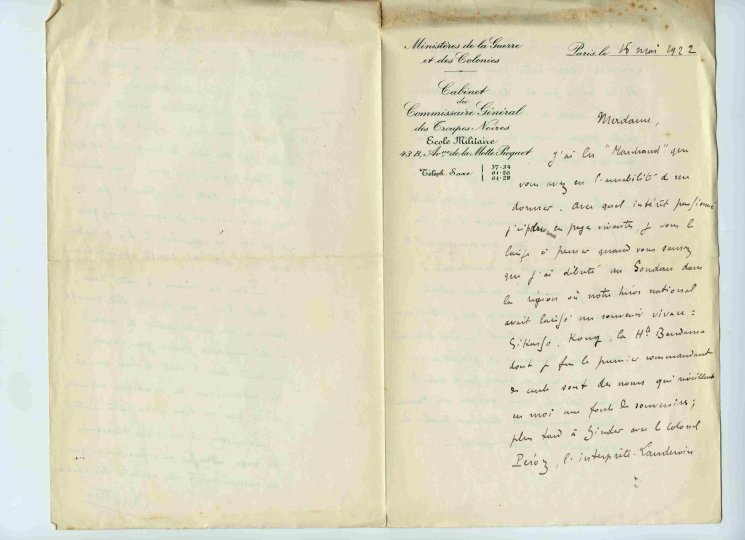 Ministères de la Guerre
et des Colonies
Cabinet
du
Commissaire Général
des Troupes Noires
Ecole Militaire
43 B. Avenue de la Motte Picquet
Téléph. Saxe 57-34
01-26
01-28
Paris, le 16 mai 1922
Madame,
J'ai lu "Marchand" que
vous avez eu l'amabilité de me
donner. Avec quel intérêt passionné
j'ai ces pages vivantes, je vous le
laisse à penser quand vous saurez
que j'ai débuté au Soudan dans
la région où notre héros national
avait laissé un souvenir vivace :
Sikasso, Kong, la Hte Bandama
dont je fus le premier commandant
de cercle sont des noms qui réveillent
en moi une foule de souvenirs ;
plus tard à Zinder avec le Colonel
Péroz, l'interprète Landeroin